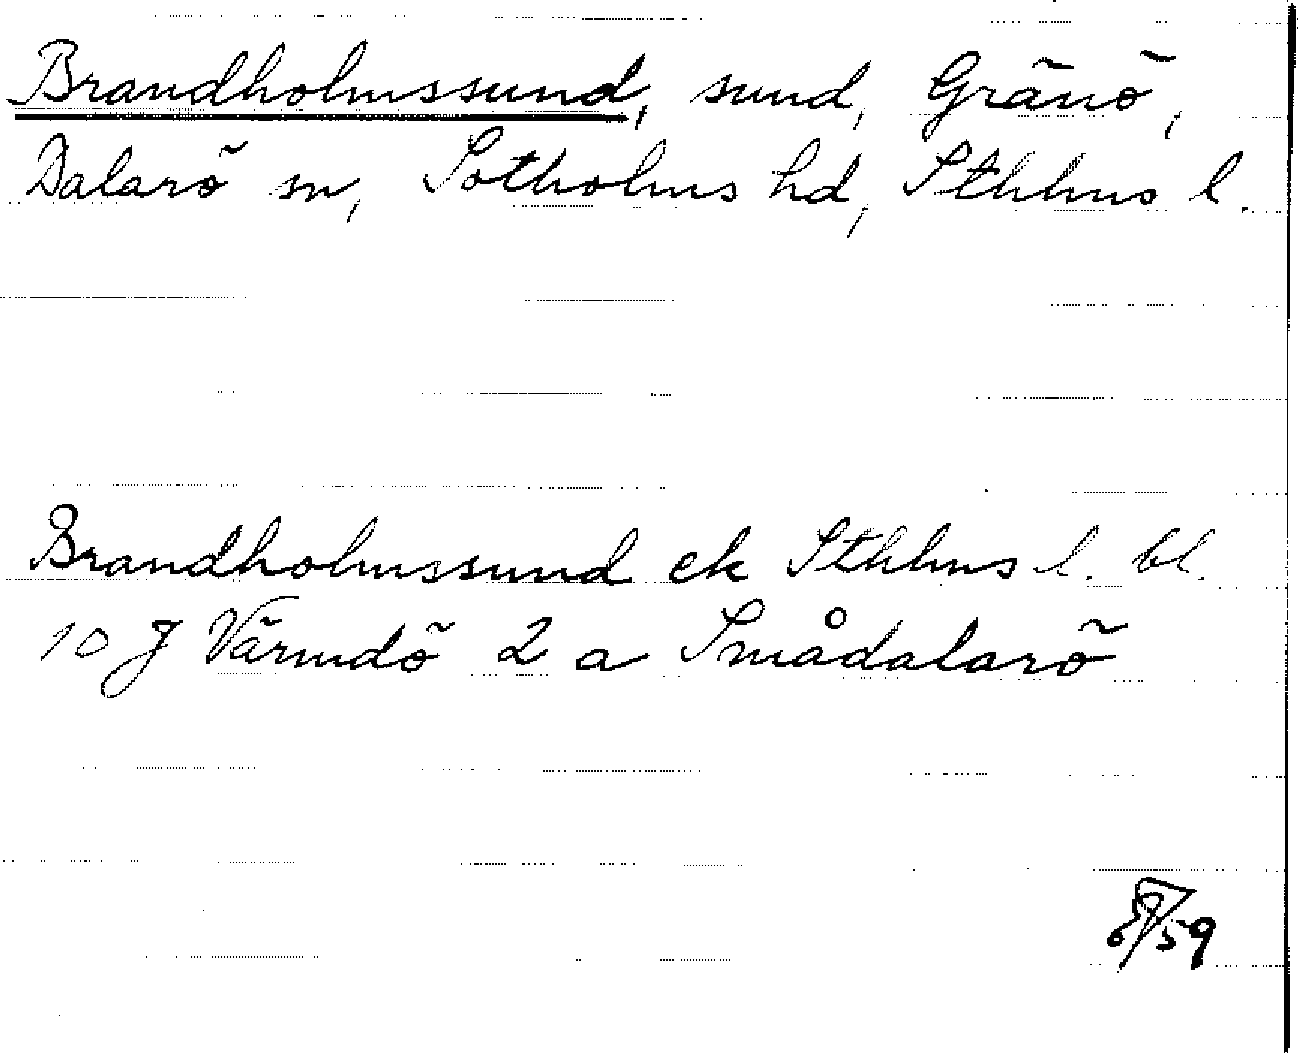 Brandholmssund, sund, Gränö,
Dalarö sn, Sotholms hd, Sthlms l.
Brandholmssund ek Sthlms l. bl.
10 J Värmdö 2 a Smådalarö